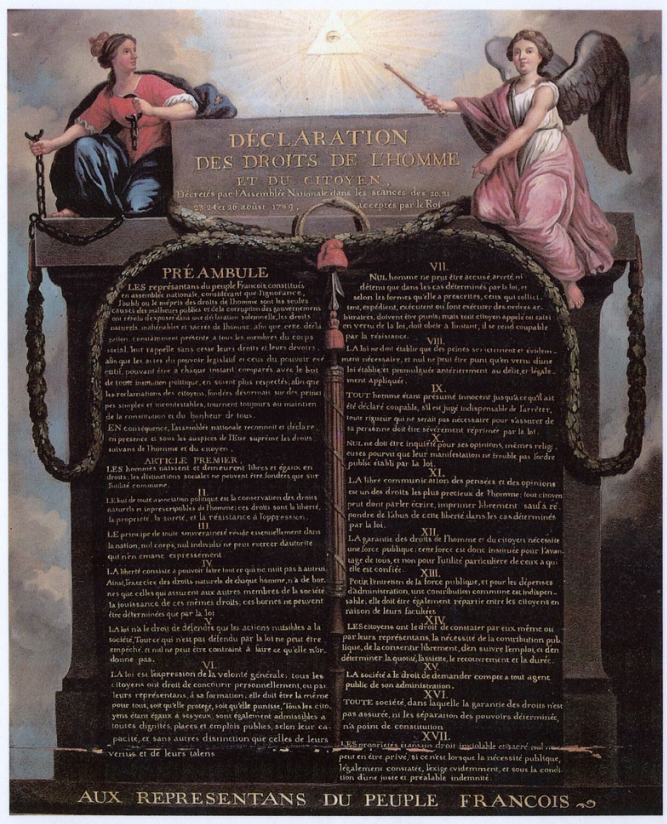 DÉCLARATION
DES DROITS DE L'HOMME
ET DU CITOYEN,
Décretés par l'Assemblée Nationale dans les séances des 20, 21
23, 24 et 26 août 1789, acceptés par le Roi
PRÉAMBULE
LES représentans du peuple François, constitués
en assemblée nationale, considérant que l'ignorance,
l'oubli ou le mépris des droits de l'homme sont les seules
causes des malheurs publics et de la corruption des gouvernemens
ont résolu d'exposer dans une déclaration solemnelle, les droits
naturels, inaliénables et sacrés de l'homme, afin que cette décla
ration, constamment présente a tous les membres du corps
social, leur rappelle sans cesse leurs droits et leurs devoirs,
afin que les actes du pouvoir législatif et ceux du pouvoir exé
cutif, pouvant être a chaque instant comparés avec le but
de toute institution politique, en soient plus respectés; afin que
les réclamations des citoyens, fondées désormais sur des principes
simples et incontestables, tournent toujours au maintien
de la constitution et du bonheur de tous.
EN conséquence, l'assemblée nationale reconnoit et déclare,
en presence et sous les auspices de l'Etre suprême les droits
suivans de l'homme et du citoyen,
ARTICLE PREMIER.
LES hommes naissent et demeurent libres et égaux en
droits, les distinctions sociales ne peuvent être fondées que sur
l'utilité commune.
II.
LE but de toute association politique est la conservation des droits
naturels et imprescriptibles de l'homme; ces droits sont la liberté,
la propriété, la sureté, et la résistance à l'oppression.
III.
LE principe de toute souveraineté réside essentiellement dans
la nation, nul corps, nul individu ne peut exercer d'autorité
qui n'en émane expressement
IV.
LA liberté consiste a pouvoir faire tout ce qui ne nuit pas à autrui
Ainsi, l'exercice des droits naturels de chaque homme, n'a de bor-
nes que celles qui assurent aux autres membres de la société
la jouissance de ces mêmes droits; ces bornes ne peuvent
être déterminées que par la loi
V.
LA loi n'a le droit de défendre que les actions nuisibles à la
société. Tout ce qui n'est pas défendu par la loi ne peut être
empêché, et nul ne peut être contraint à faire ce qu'elle n'or-
donne pas.
VI.
LA loi est l'expression de la volonté générale; tous les
citoyens ont droit de concourir personnellement, ou par
leurs représentans, à sa formation; elle doit être la même
pour tous, soit qu'elle protege, soit qu'elle punisse. Tous les cito,
yens étant égaux à ses yeux, sont également admissibles a
toutes dignités, places et emplois publics, selon leur ca,
pacité, et sans autres distinction que celles de leurs
vertus et de leurs talens
VII.
NUL homme ne peut être accusé, arreté, ni
détenu que dans les cas déterminés par la loi, et
selon les formes qu'elle a prescrites, ceux qui sollici,
tent, expédient, exécutent ou font exécuter des ordres ar-
bitraires, doivent être punis; mais tout citoyen appelé ou saisi
en vertu de la loi, doit obéir à l'instant, il se rend coupable
par la résistance.
VIII.
LA loi ne doit établir que des peines strictement et évidem-
ment nécessaire, et nul ne peut être puni qu'en vertu d'une
loi établie et promulguée antérieurement au délit, et légale-
ment appliquée.
IX.
TOUT homme étant présumé innocent jusqu'à ce qu'il ait
été déclaré coupable, s'il est jugé indispensable de l'arrêter,
toute rigueur qui ne serait pas nécessaire pour s'assurer de
sa personne doit être sévèrement réprimée par la loi.
X.
NUL ne doit être inquiété pour ses opinions, mêmes religi,
euses pourvu que leur manifestation ne trouble pas l'ordre
public établi par la loi.
XI.
LA libre communication des pensées et des opinions
est un des droits les plus precieux de l'homme; tout citoyen
peut donc parler écrire, imprimer librement: sauf à ré,
pondre de l'abus de cette liberté dans les cas déterminés
par la loi.
XII.
LA garantie des droits de l'homme et du citoyen nécessite
une force publique; cette force est donc instituée pour l'avan,
tage de tous, et non pour l'utilité particuliere de ceux a qui
elle est confiée.
XIII.
Pour l'entretien de la force publique, et pour les dépenses
d'administration, une contribution commune est indispen-
sable; elle doit être également répartie entre les citoyens en
raison de leurs facultées
XIV.
LES citoyens ont le droit de constater par eux même ou
par leurs représentans, la nécessité de la contribution pub
lique, de la consentir librement, d'en suivre l'emploi, et d'en
déterminer la quotité, l'assiette, le recouvrement et la durée.
XV.
LA société a le droit de demander compte a tout agent
public de son administration.
XVI.
TOUTE société, dans laquelle la garantie des droits n'est
pas assurée, ni les séparation des pouvoirs déterminée,
n'a point de constitution.
XVII.
LES propriétés étant un droit inviolable et sacré, nul ne
peut en être privé, si ce n'est lorsque la nécessité publique,
légalement constatée, l'exige evidemment, et sous la condi
tion d'une juste et préalable indemnité.
AUX REPRESENTANS DU PEUPLE FRANCOIS